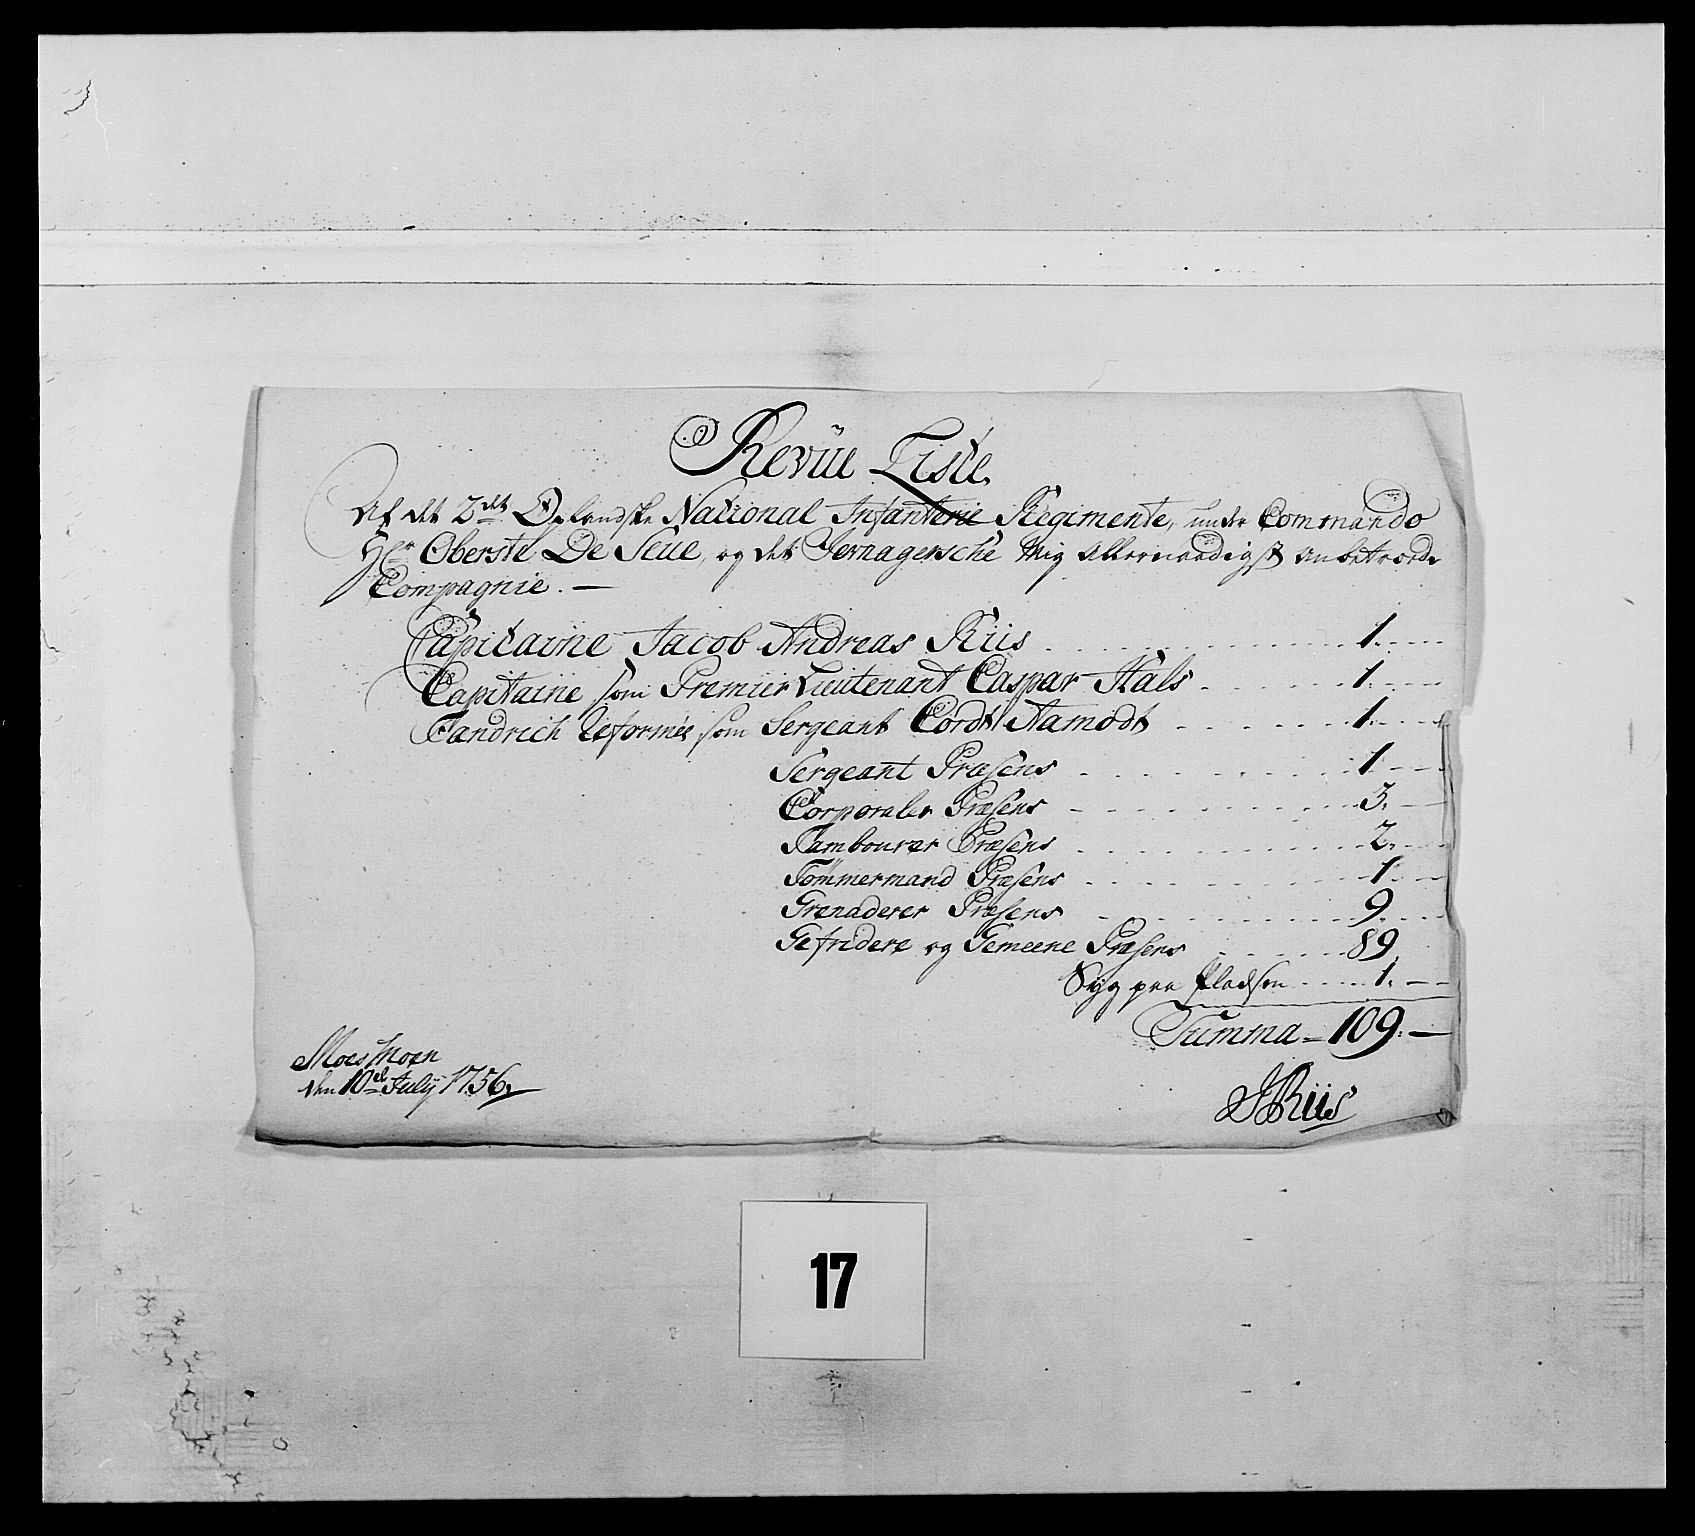 Revüe Liste
Af det 2det Oplandske National Infanterie Regimente, under Commando
Hr Oberste De Seue, og det Jernagersche Mig Allernaadigst Anbetroede
Compagnie. —
Capitaine Jacob Andreas Riis . . . . 1. —
Capitaine som Premier Lieutenant Caspar Hals . . . . 1. —
Fændrich Reformée som Sergeant Cordt Aamodt . . . . 1. —
Sergeant Præsens . . . . 1 —
Corporaler Præsens . . . . 3. —
Tambourer Præsens . . . . 2. —
Tømmermand Præsens . . . . 1. —
Grenaderer Præsens . . . . 9. —
Gefridere og Gemeene Præsens . . . . 89
Syg paa Pladsen . . . . 1. —
Summa = 109. —
Moes Moen
den 10d July 1756.
JARiis
17